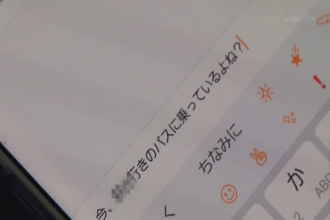 今、行きのバスに乗っているよね?
ちなみに
く
か
ABC
2